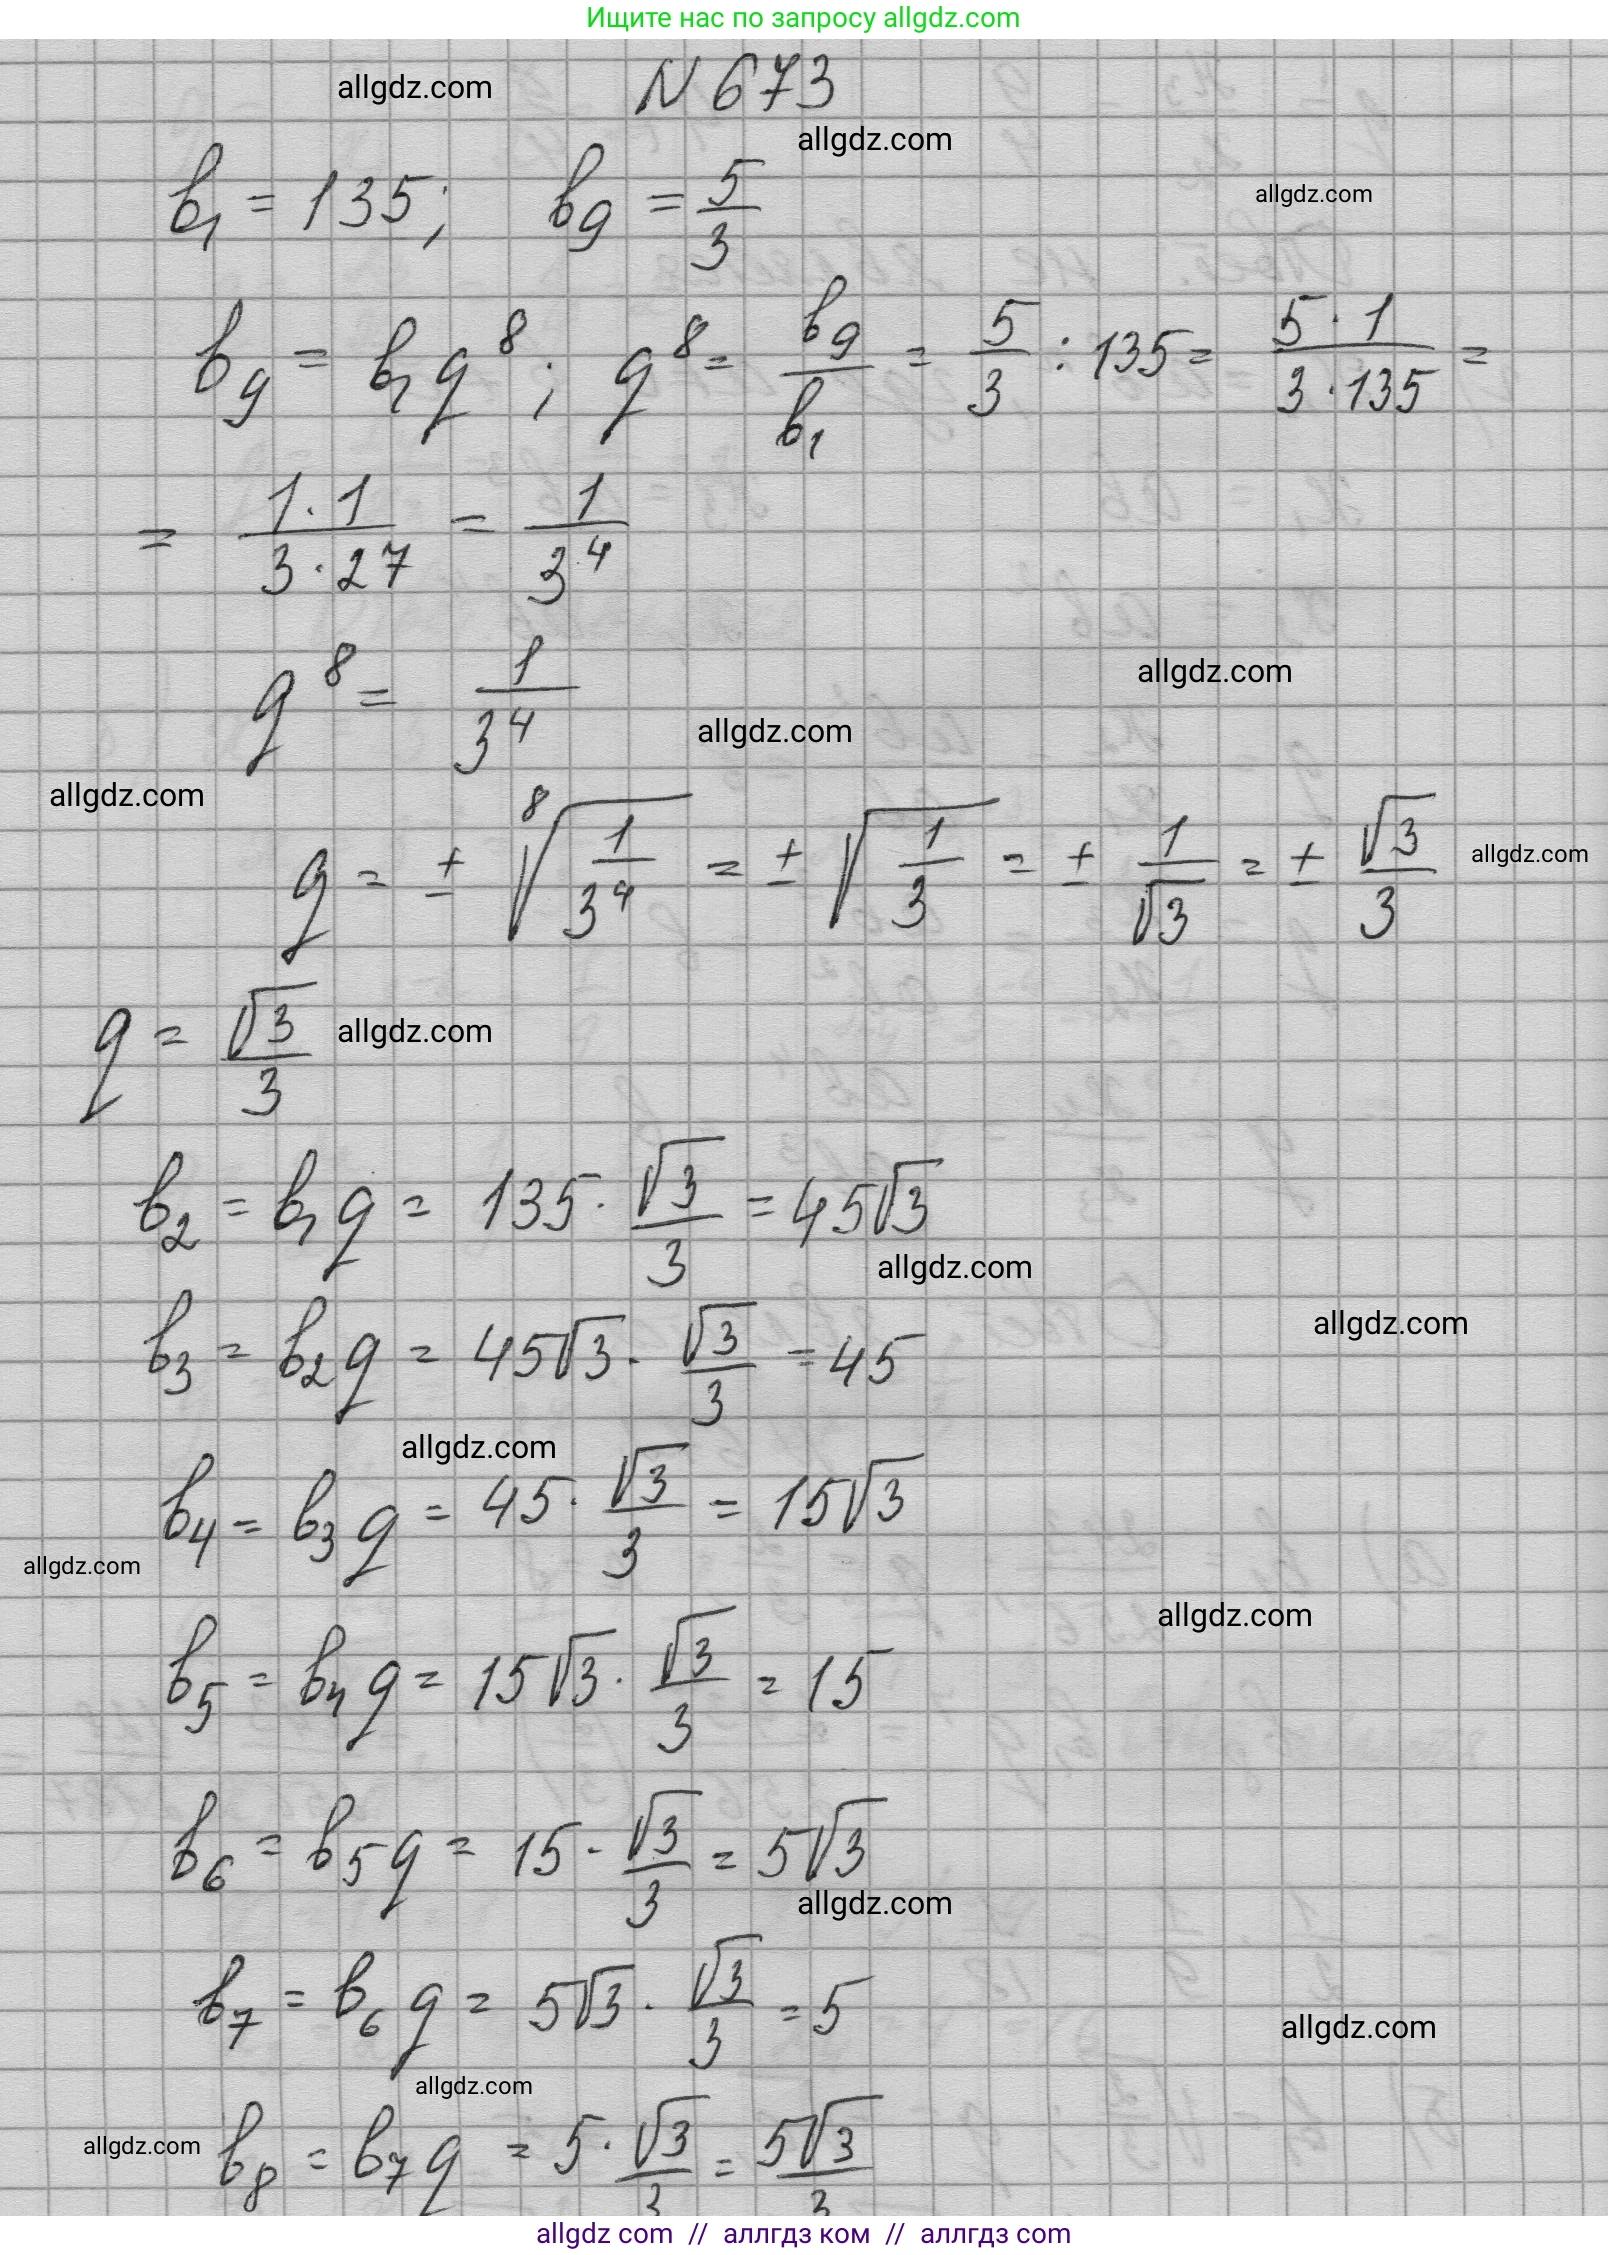 Ищите нас по запросу allgdz.com
allgdz.com
N 673
allgdz.com
b₁ = 135; b₉ = 5/3
allgdz.com
b₉ = b₁q⁸; q⁸ = b₉/b₁ = 5/3 : 135 = (5·1)/(3·135) =
= (1·1)/(3·27) = 1/3⁴
q⁸ = 1/3⁴
allgdz.com
allgdz.com
allgdz.com
q = ± ⁸√(1/3⁴) = ± √(1/3) = ± 1/√3 = ± √3/3
allgdz.com
q = √3/3
allgdz.com
b₂ = b₁q = 135 · √3/3 = 45√3
allgdz.com
allgdz.com
b₃ = b₂q = 45√3 · √3/3 = 45
allgdz.com
b₄ = b₃q = 45 · √3/3 = 15√3
allgdz.com
allgdz.com
b₅ = b₄q = 15√3 · √3/3 = 15
b₆ = b₅q = 15 · √3/3 = 5√3
allgdz.com
b₇ = b₆q = 5√3 · √3/3 = 5
allgdz.com
allgdz.com
allgdz.com
b₈ = b₇q = 5 · √3/3 = 5√3/3
allgdz com // аллгдз ком // аллгдз com